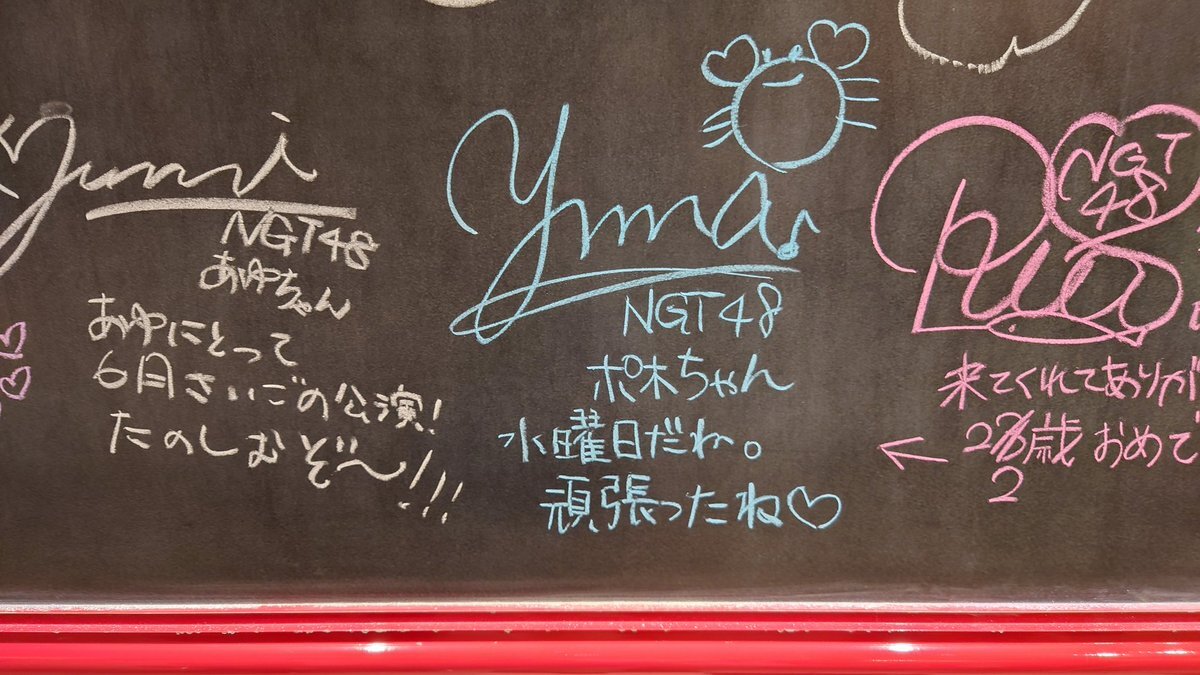 yumi
NGT48
あゆちゃん
あゆにとって
6月さいごの公演!
たのしむぞ〜!!!
yuma
NGT48
ポ木ちゃん
水曜日だね。
頑張ったね♡
NGT
48
来てくれてありが
歳おめで
2